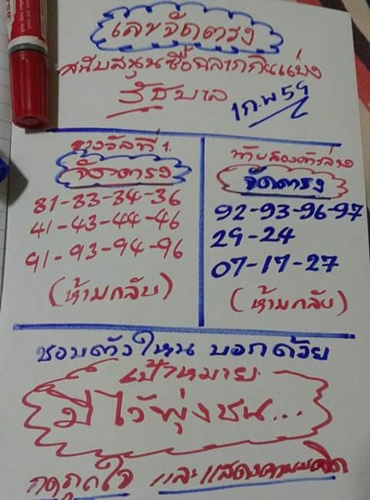 เลขจัดตรง
สนับสนุนซื้อฉลากกินแบ่ง
รัฐบาล
1กพ59
รางวัลที่1.
จัดตรง
81-33-34-36
41-43-44-46
91-93-94-96
(ห้ามกลับ)
ท้ายสองตัวล่าง
จัดตรง
92-93-96-97
29-24
07-17-27
(ห้ามกลับ)
ชอบตัวไหน บอกด้วย
เป้าหมาย
มีไว้พุ่งชน...
กดถูกใจ และแสดงความคิด